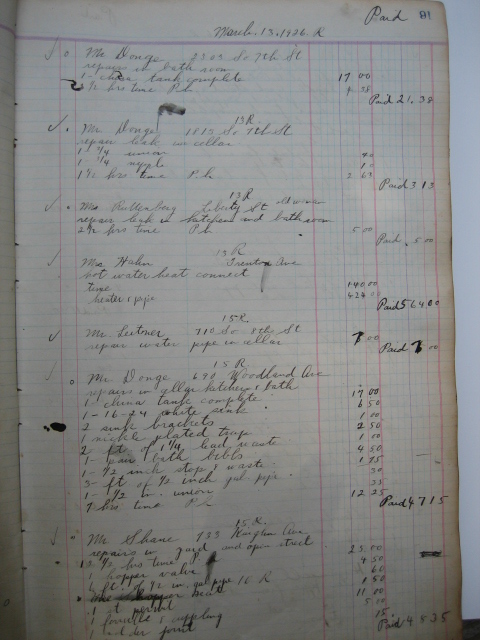 Paid 91
March. 13. 1926. R
Mr Donge 2303 So 7th St
repairs in bath room
1 - china tank complete 17 00
hrs time P.h. 4 38
Paid 21.38
13 R
Mr Donge 1013 So 7th St
repair leak in cellar
1 1/4 union 40
1 - 1/4 nipple 10
1 1/2 hrs time P.h. 2 63
Paid 3 13
13 R
Mr Ruttenberg Liberty St
repair leak in kitchen and bath room
2 1/2 hrs time P.h. 5 00
Paid 5 00
13 R
Mr Hahn Trenton Ave
hot water heat connect
time 140 00
heater & pipe 424 0
Paid 564 00
15 R.
Mr Leitner 710 So 8th St
repair water pipe in cellar 7 00
Paid 7 00
15 R
Mr Donge 690 Woodland Ave
repairs in cellar kitchen & bath
1 china tank complete 17 00
1 - 16-24 white sink 6 50
2 sink brackets 1 00
1 nickle plated trap 2 50
2 ft of 1 1/4 lead waste 1 00
1 - pair bath bibbs 4 50
1 - 1/2 inch stop & waste 1 75
3 ft of 1/2 inch gal pipe 30
1 - 1/2 in. union 35
7 hrs time P.h. 12 25
Paid 47 15
15 R.
Mr Shane 733 Ave
repairs in yard and open street
hrs time 25 00
1 hopper valve 4 50
ft. of 1/2 in gal pipe 16 R 60
1 50
1 st permit 11 00
1 ferrule & coupling 5 00
1 joint 15
Paid 48 35